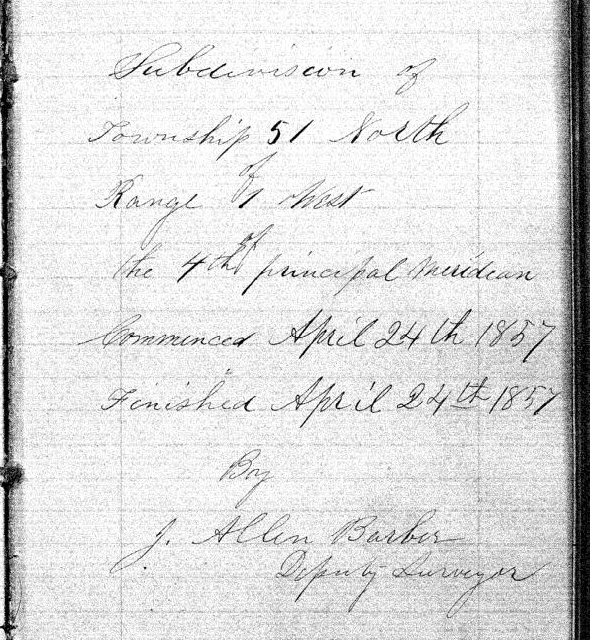 Subdivision of
Township 51 North
of
Range 1 West
of
the 4th principal Meridian
Commenced April 24th 1857
Finished April 24th 1857
By
J. Allen Barber
Deputy Surveyor